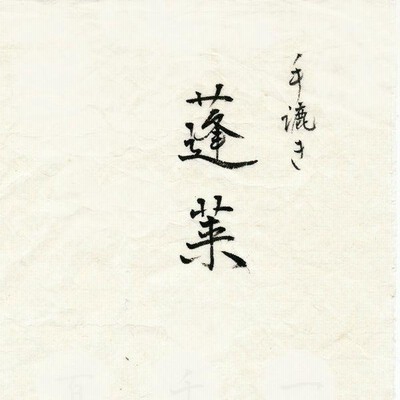 手漉き
蓬莱